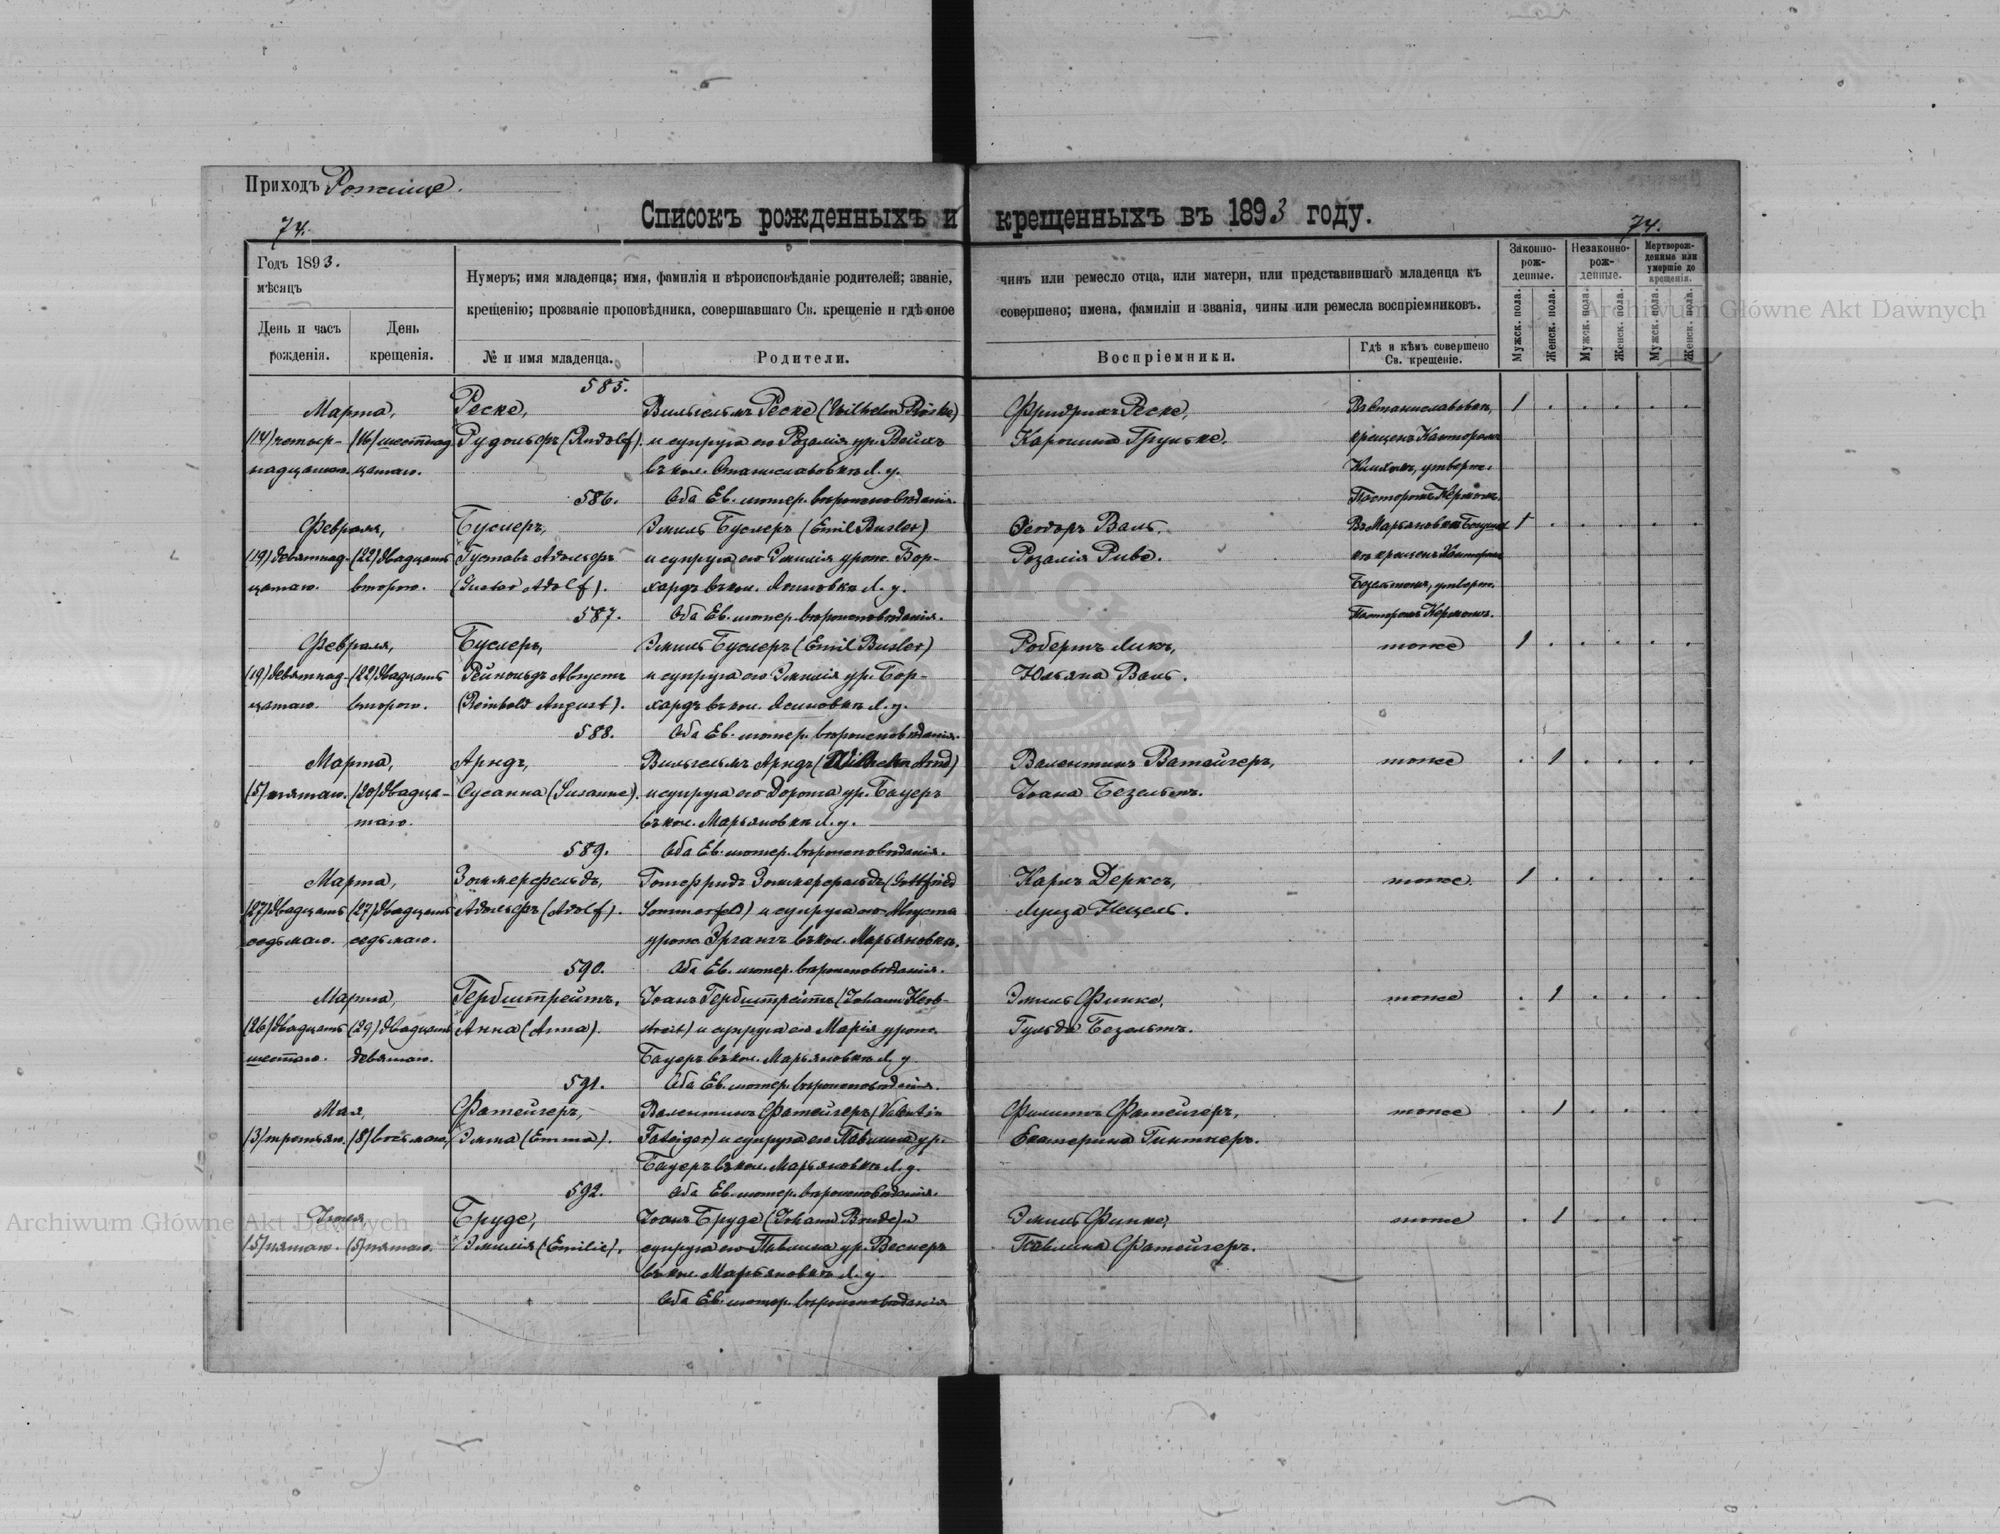 Приходъ Рожище.
Списокъ рожденныхъ и крещенныхъ въ 1893 году.
74.
74.
Годъ 1893.
мѣсяцъ
День и часъ рожденія.
День крещенія.
Нумеръ; имя младенца; имя, фамилія и вѣроисповѣданіе родителей; званіе, чинъ или ремесло отца, или матери, или представившаго младенца къ
крещенію; прозваніе проповѣдника, совершавшаго Св. крещеніе и гдѣ оное совершено; имена, фамиліи и званія, чины или ремесла воспріемниковъ.
№ и имя младенца.
Родители.
Воспріемники.
Гдѣ и кѣмъ совершено
Св. крещеніе.
Законно-
рож-
денные.
Незаконно-
рож-
денные.
Мертворож-
денные или
умершіе до
крещенія.
Мужск. пола.
Женск. пола.
Мужск. пола.
Женск. пола.
Мужск. пола.
Женск. пола.
585.
Марта, Реске, Вильгельмъ Реске (Wilhelm Röske) Фридрихъ Реске, Въ Станиславовкѣ, 1
(14) четыр- (16) шестнад Рудольфъ (Rudolf). и супруга его Розалія ур. Вейхъ Каролина Грульке. крещенъ Канторомъ
надцатаго. цатаго. въ кол. Станиславовкѣ Л. у. утверж.
586. Оба Ев. лютер. вѣроисповѣданія. Пасторомъ Кермомъ.
Февраля, Буслеръ, Эмиль Буслеръ (Emil Busler) Теодоръ Валь. Въ Марьяновкѣ 1
(19) девятнад- (22) двадцать Густавъ Адольфъ и супруга его Эмилія урож. Бор- Розалія Риве. крещенъ Канторомъ
цатаго. второго. (Gustav Adolf). хардъ въ кол. Ясиновкѣ Л. у. Безельтомъ, утверж.
587. Оба Ев. лютер. вѣроисповѣданія. Пасторомъ Кермомъ.
Февраля, Буслеръ, Эмиль Буслеръ (Emil Busler) Робертъ Ликъ, тоже 1
(19) девятнад- (22) двадцать Рейнольдъ Августъ и супруга его Эмилія ур. Бор- Юльяна Валь.
цатаго. второго. (Reinhold August). хардъ въ кол. Ясиновкѣ Л. у.
588. Оба Ев. лютер. вѣроисповѣданія.
Марта, Арндъ, Вильгельмъ Арндъ (Wilhelm Arnd) Валентинъ Ватейгеръ, тоже 1
(5) пятаго. (20) двадца- Сусанна (Susanne). и супруга его Дорота ур. Бауеръ Іоана Безельтъ.
таго. въ кол. Марьяновкѣ Л. у.
589. Оба Ев. лютер. вѣроисповѣданія.
Марта, Зоммерфельдъ, Готфридъ Зоммерфельдъ (Gottfried Карлъ Дерксъ, тоже. 1
(27) двадцать (27) двадцать Адольфъ (Adolf). Sommerfeld) и супруга его Августа Луиза Нецель.
седьмаго. седьмаго. урож. Эргангъ въ кол. Марьяновкѣ.
590. Оба Ев. лютер. вѣроисповѣданія.
Марта, Гербштрейтъ, Іоанъ Гербштрейтъ (Johann Herb- Эмиль Финке, тоже 1
(26) двадцать (29) двадцать Анна (Anna). streit) и супруга его Марія урож. Гульда Безельтъ.
шестаго. девятаго. Бауеръ въ кол. Марьяновкѣ Л. у.
591. Оба Ев. лютер. вѣроисповѣданія.
Мая, Фатейгеръ, Валентинъ Фатейгеръ (Valentin Филиппъ Фатейгеръ, тоже 1
(3) третьяго. (8) восьмаго, Эмма (Emma). Fateiger) и супруга его Павлина ур. Екатерина Гинтнеръ.
Бауеръ въ кол. Марьяновкѣ Л. у.
592. Оба Ев. лютер. вѣроисповѣданія.
Іюня, Бруде, Іоанъ Бруде (Johann Brude) и Эмиль Финке, тоже 1
(5) пятаго. (5) пятаго. Эмилія (Emilie). супруга его Павлина ур. Веснеръ Павлина Фатейгеръ.
въ кол. Марьяновкѣ Л. у.
Оба Ев. лютер. вѣроисповѣданія
Archiwum Główne Akt Dawnych
Archiwum Główne Akt Dawnych